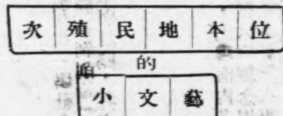 次殖民地本位
的
小文藝